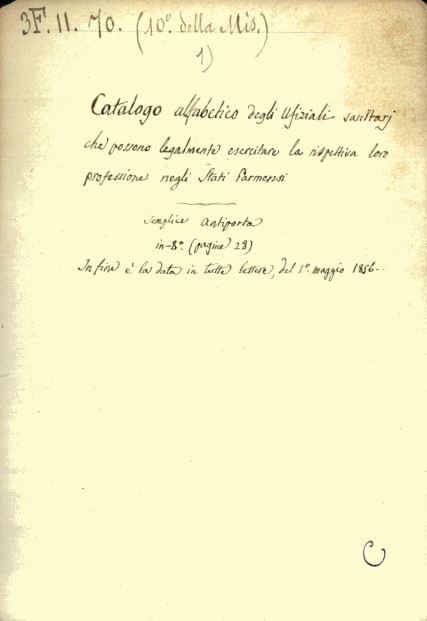 3F. II. 70. (10º. della Mis.)
1)
Catalogo alfabetico degli Ufiziali sanitarj
che possono legalmente esercitare la rispettiva loro
professione negli Stati Parmensi
semplice Antiporta
in-8º (pagine 28)
In fine è la data in tutte lettere, del 1º. maggio 1856.
C